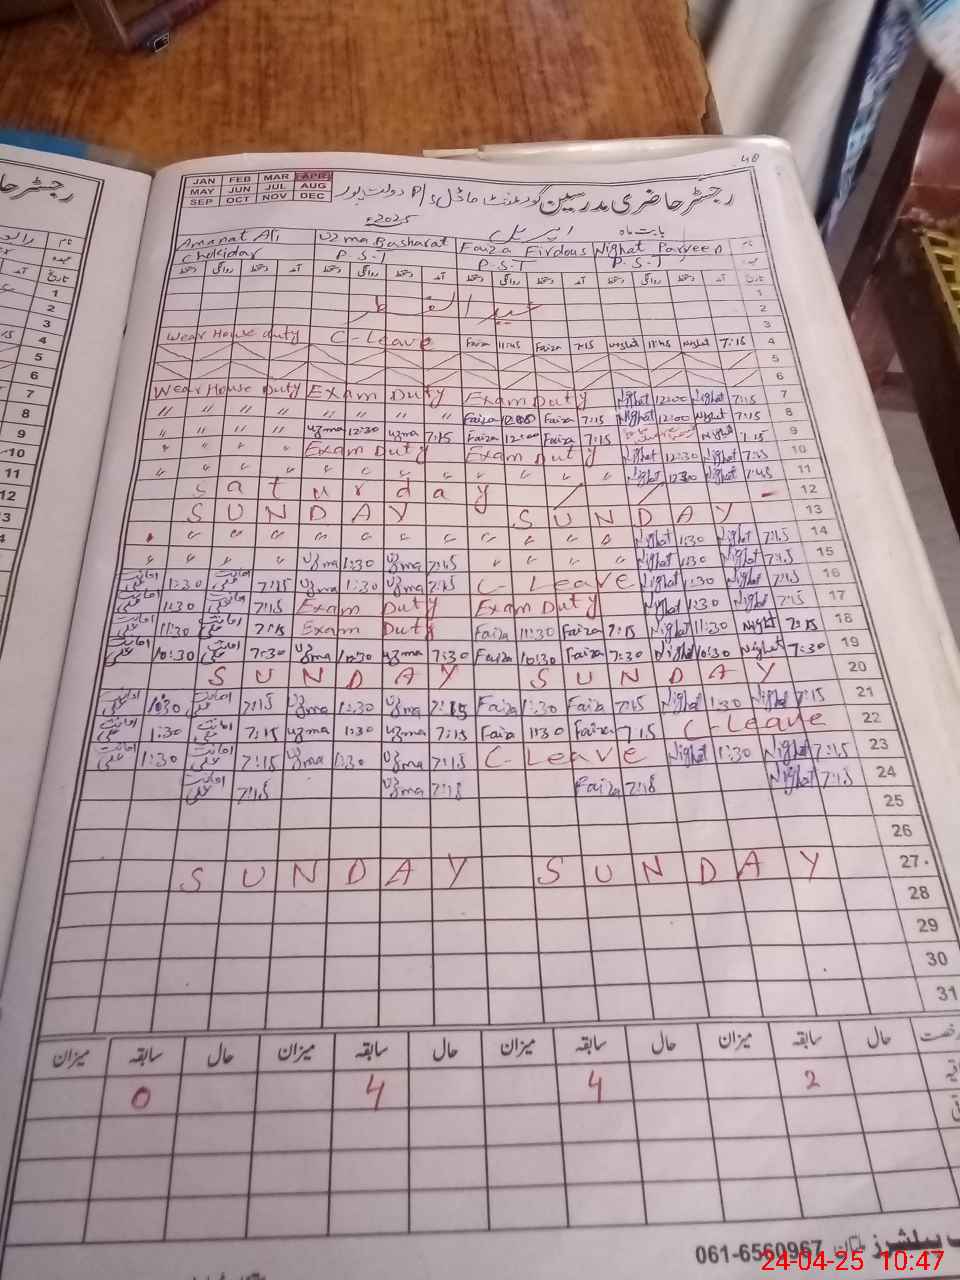 48
JAN FEB MAR APR
MAY JUN JUL AUG
SEP OCT NOV DEC
رجسٹر حاضری مدرسین گورنمنٹ ماڈل P/S دولت پور
بابت ماہ اپریل 2025ء
Amanat Ali Uzma Basharat Faiza Firdous Nighat Parveen نام
Chokidar P.S.T P.S.T P.S.T عہدہ
دستخط روانگی دستخط آمد دستخط روانگی دستخط آمد دستخط روانگی دستخط آمد دستخط روانگی دستخط آمد تاریخ
1
عید الفطر 2
3
Wear House duty C-Leave Faiza 11:45 Faiza 7:15 Nighat 11:45 Nighat 7:15 4
5
6
Wear House Duty Exam Duty Exam Duty Nighat 12:00 Nighat 7:15 7
" " " " " " " " Faiza Faiza 7:15 Nighat 12:00 Nighat 7:15 8
" " " " Uzma 12:30 Uzma 7:15 Faiza 12:00 Faiza 7:15 Nighat 7:15 9
" " " " Exam Duty Exam Duty Nighat 12:30 Nighat 10
" " " " " " " " " " " " Nighat Nighat 7:45 11
Saturday 12
SUNDAY SUNDAY 13
" " " " " " " " " " Nighat 1:30 Nighat 7:15 14
" " " " Uzma 1:30 Uzma 7:15 " " " Nighat 1:30 Nighat 7:15 15
امانت علی 1:30 امانت علی 7:15 Uzma 1:30 Uzma 7:15 C-Leave Nighat 1:30 Nighat 7:15 16
امانت علی 1:30 امانت علی 7:15 Exam Duty Exam Duty Nighat 1:30 Nighat 7:15 17
امانت علی 11:30 امانت علی 7:15 Exam Duty Faiza 11:30 Faiza 7:15 Nighat 11:30 Nighat 7:15 18
امانت علی 10:30 امانت علی 7:30 Uzma 10:30 Uzma 7:30 Faiza 10:30 Faiza 7:30 Nighat 10:30 Nighat 7:30 19
SUNDAY SUNDAY 20
امانت علی 1:30 امانت علی 7:15 Uzma 1:30 Uzma 7:15 Faiza 1:30 Faiza 7:15 Nighat 1:30 Nighat 7:15 21
امانت علی 1:30 امانت علی 7:15 Uzma 1:30 Uzma 7:15 Faiza 1:30 Faiza 7:15 C-Leave 22
امانت علی 1:30 امانت علی 7:15 Uzma 1:30 Uzma 7:15 C-Leave Nighat 1:30 Nighat 7:15 23
امانت علی 7:15 Uzma 7:15 Faiza 7:15 Nighat 7:15 24
25
26
SUNDAY SUNDAY 27
28
29
30
31
میزان سابقہ حال میزان سابقہ حال میزان سابقہ حال میزان سابقہ حال
0 4 4 2
پبلشرز ملتان 061-6560967
24-04-25 10:47
رجسٹر حا
نام
عہدہ
تاریخ
1
2
3
4
5
6
7
8
9
10
11
12